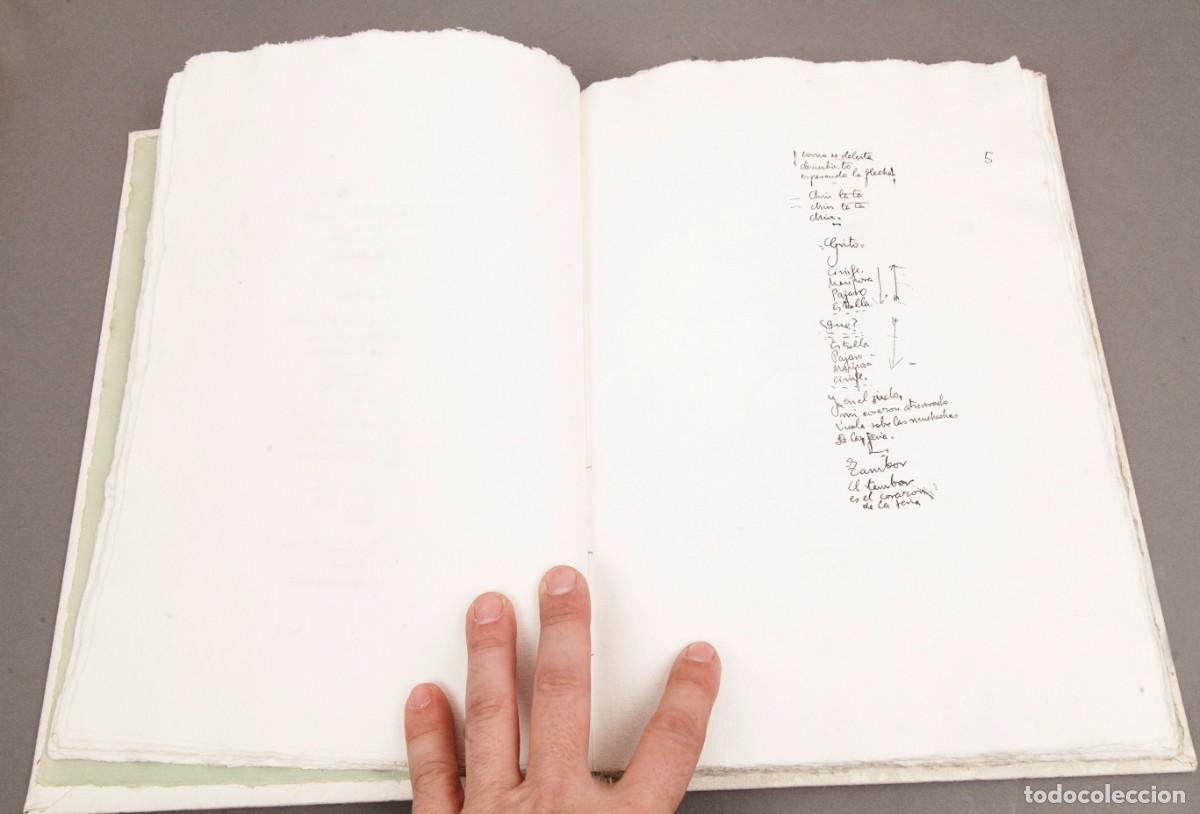 5
¡como se deleita
descubierto
esperando la flecha!
Chin ta ta
chin ta ta
chin.
Grito
Cínife.
Mariposa
Pajaro
Estrella
¿Que?
Estrella
Pajaro
Mariposa
Cínife.
y en el
mi corazon atravesado
vuela sobre las muchachas
de la feria.
Tambor
El tambor
es el corazon
de la feria
todocoleccion